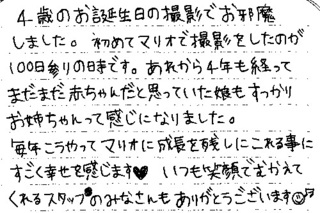 4歳のお誕生日の撮影でお邪魔
しました。初めてマリオで撮影をしたのが
100日参りの日時です。あれから4年も経って
まだまだ赤ちゃんだと思っていた娘もすっかり
お姉ちゃんって感じになりました。
毎年こうやってマリオに成長を残しにこれる事に
すごく幸せを感じます♥ いつも笑顔でむかえて
くれるスタッフのみなさんも ありがとうございます☺♪